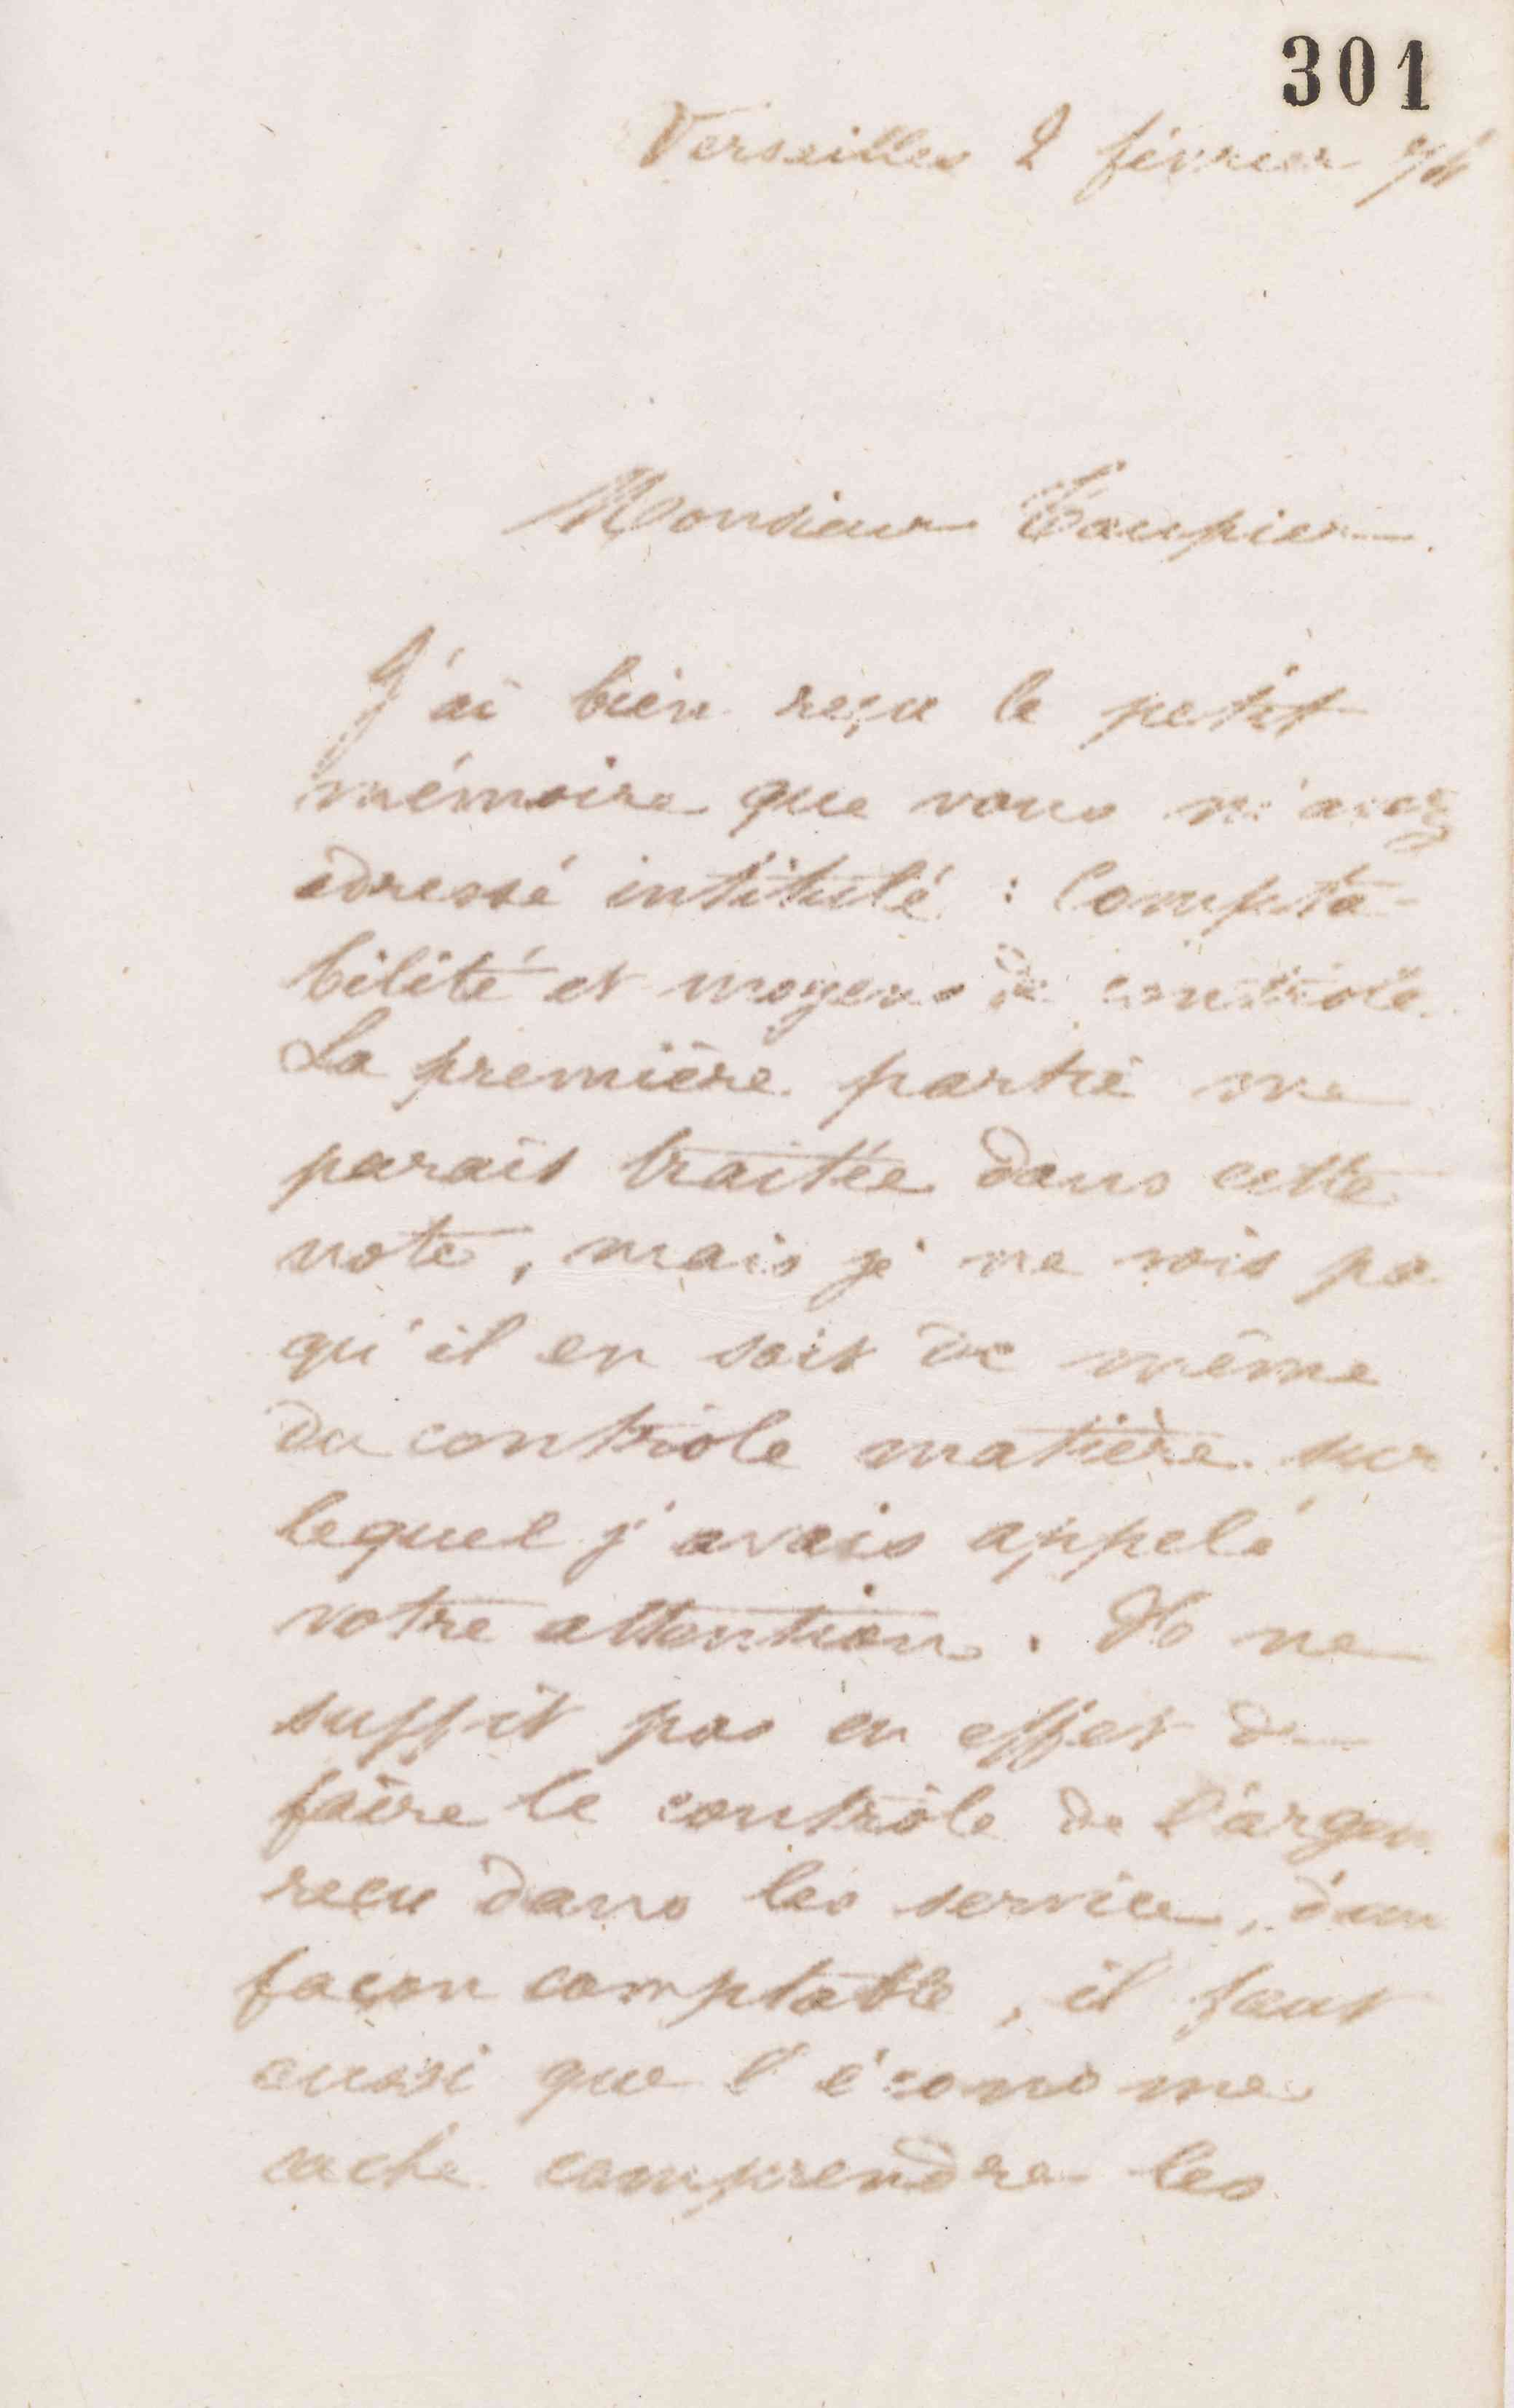 301
Versailles 2 février
Monsieur
J'ai bien reçu le petit
mémoire que vous m'avez
adressé intitulé : Compta-
bilité et moyens de contrôle.
La première partie me
parait traitée dans cette
note, mais je ne vois pa
qu'il en soit de même
du contrôle matière sur
lequel j'avais appelé
votre attention. Il ne
suffit pas en effet de
faire le contrôle de l'argen
reçu dans les service, d'un
façon comptable, il faut
aussi que l'économe
sache comprendre les